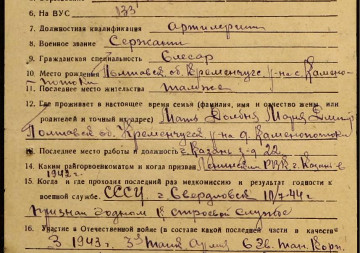 6. На ВУС 133
7. Должностная квалификация артиллерист
8. Военное звание Сержант
9. Гражданская специальность Слесарь
10. Место рождения Полтавск об. Кременчугс р-на с. Камено-
потоки
11. Последнее место жительства также
12. Где проживает в настоящее время семья (фамилия, имя и отчество жены или
родителей и точный их адрес) Мать Мария Дмитр
Полтавск об. Кременчугск р-на д. Каменопотоки
13. Последнее место работы и должность г. Казань з-д 22
14. Каким райгорвоенкоматом и когда призван Ленинским РВК г. Казань в
1942 г.
15. Когда и где проходил последний раз медкомиссию и результат годности к
военной службе СССР г. Свердловск 10/7-44 г
признан годном к строевой службе
16. Участие в Отечественной войне (в составе какой последней части и в качестве
З 1943 г. 3я Танк Армия 6 Гв. Тан. Корп.